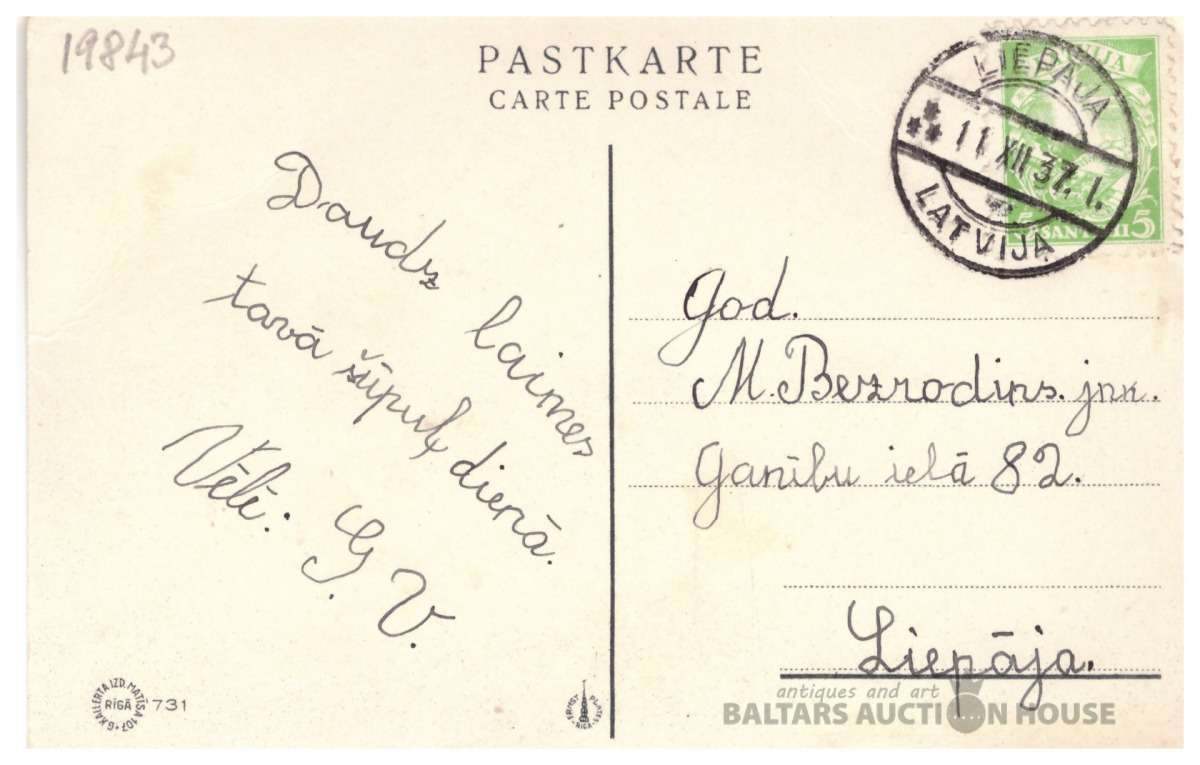 19843
PASTKARTE
CARTE POSTALE
LIEPĀJA
11 XII 37. I.
LATVIJA
5 SANTIMI 5
Daudz laimes
tavā šūpuļ dienā.
Vēlī: G. V.
God.
M. Bezrodins. jnk.
Ganību ielā 82.
Liepāja.
G. KALLERTA IZD. MATĪSA 107
RĪGĀ
731
ERNST PLATES RIGA
antiques and art
BALTARS AUCTION HOUSE